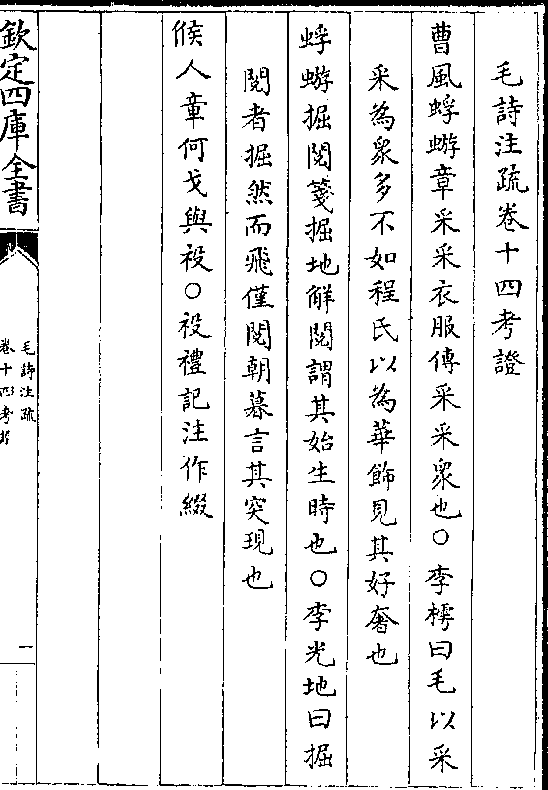 毛詩注疏卷十四考證
曹風蜉蝣章采采衣服傳采采衆也○李樗曰毛以采
采為衆多不如程氏以為華飾見其好奢也
蜉蝣掘閱箋掘地解閱謂其始生時也○李光地曰掘
閱者掘然而飛僅閱朝暮言其突現也
候人章何戈與祋○祋禮記注作綴
欽定四庫全書
毛詩注疏
卷十四考證
一